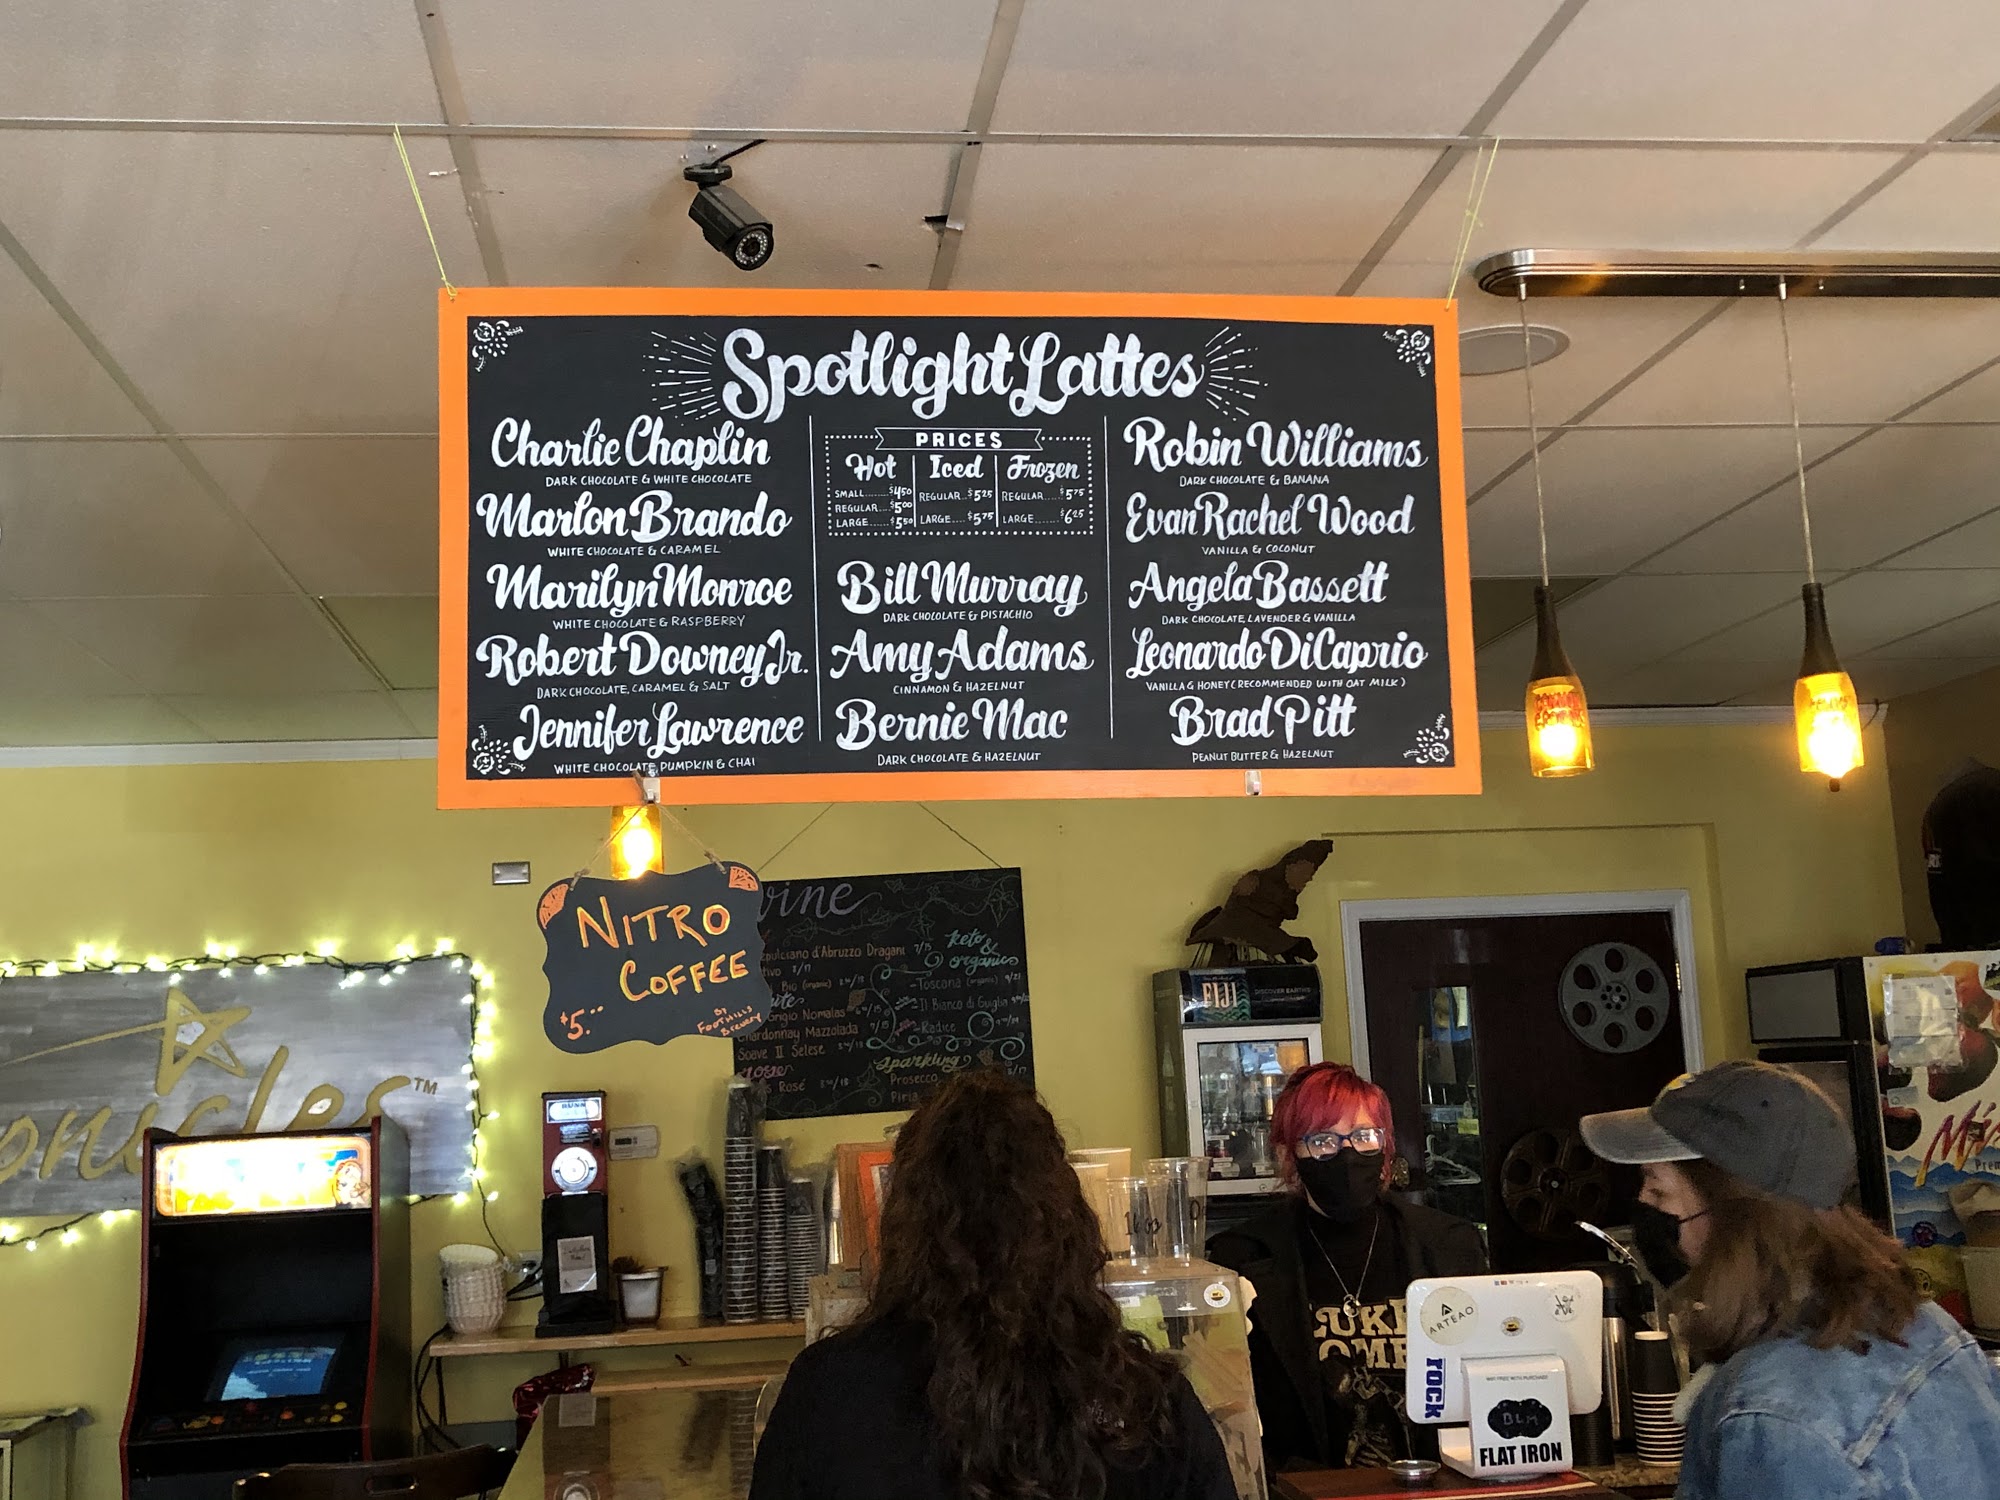 Spotlight Lattes
Charlie Chaplin
DARK CHOCOLATE & WHITE CHOCOLATE
Marlon Brando
WHITE CHOCOLATE & CARAMEL
Marilyn Monroe
WHITE CHOCOLATE & RASPBERRY
Robert Downey Jr.
DARK CHOCOLATE, CARAMEL & SALT
Jennifer Lawrence
WHITE CHOCOLATE, PUMPKIN & CHAI
PRICES
Hot
SMALL........$4.50
REGULAR....$5.00
LARGE......$5.50
Iced
REGULAR..$5.25
LARGE....$5.75
Frozen
REGULAR...$5.75
LARGE.......$6.25
Bill Murray
DARK CHOCOLATE & PISTACHIO
Amy Adams
CINNAMON & HAZELNUT
Bernie Mac
DARK CHOCOLATE & HAZELNUT
Robin Williams
DARK CHOCOLATE & BANANA
Evan Rachel Wood
VANILLA & COCONUT
Angela Bassett
DARK CHOCOLATE, LAVENDER & VANILLA
Leonardo DiCaprio
VANILLA & HONEY (RECOMMENDED WITH OAT MILK)
Brad Pitt
PEANUT BUTTER & HAZELNUT
NITRO
COFFEE
$5.00
BY
FOOTHILLS
BREWERY
wine
epulciano d'Abruzzo Dragani 7/15
tivo 8/17
Bio (organic)
Grigio Nomalas
Chardonnay Mazzolada 7/15
Soave II Selese
rose
Rosé
keto
&
organic
-Toscana (organic) 9/23
-Il Bianco di Guiglia
-Radice
sparkling
Prosecco
FIJI
DISCOVER EARTH'S
onicles™
BUNN
ARTEAO
ROCK
BLM
FLAT IRON